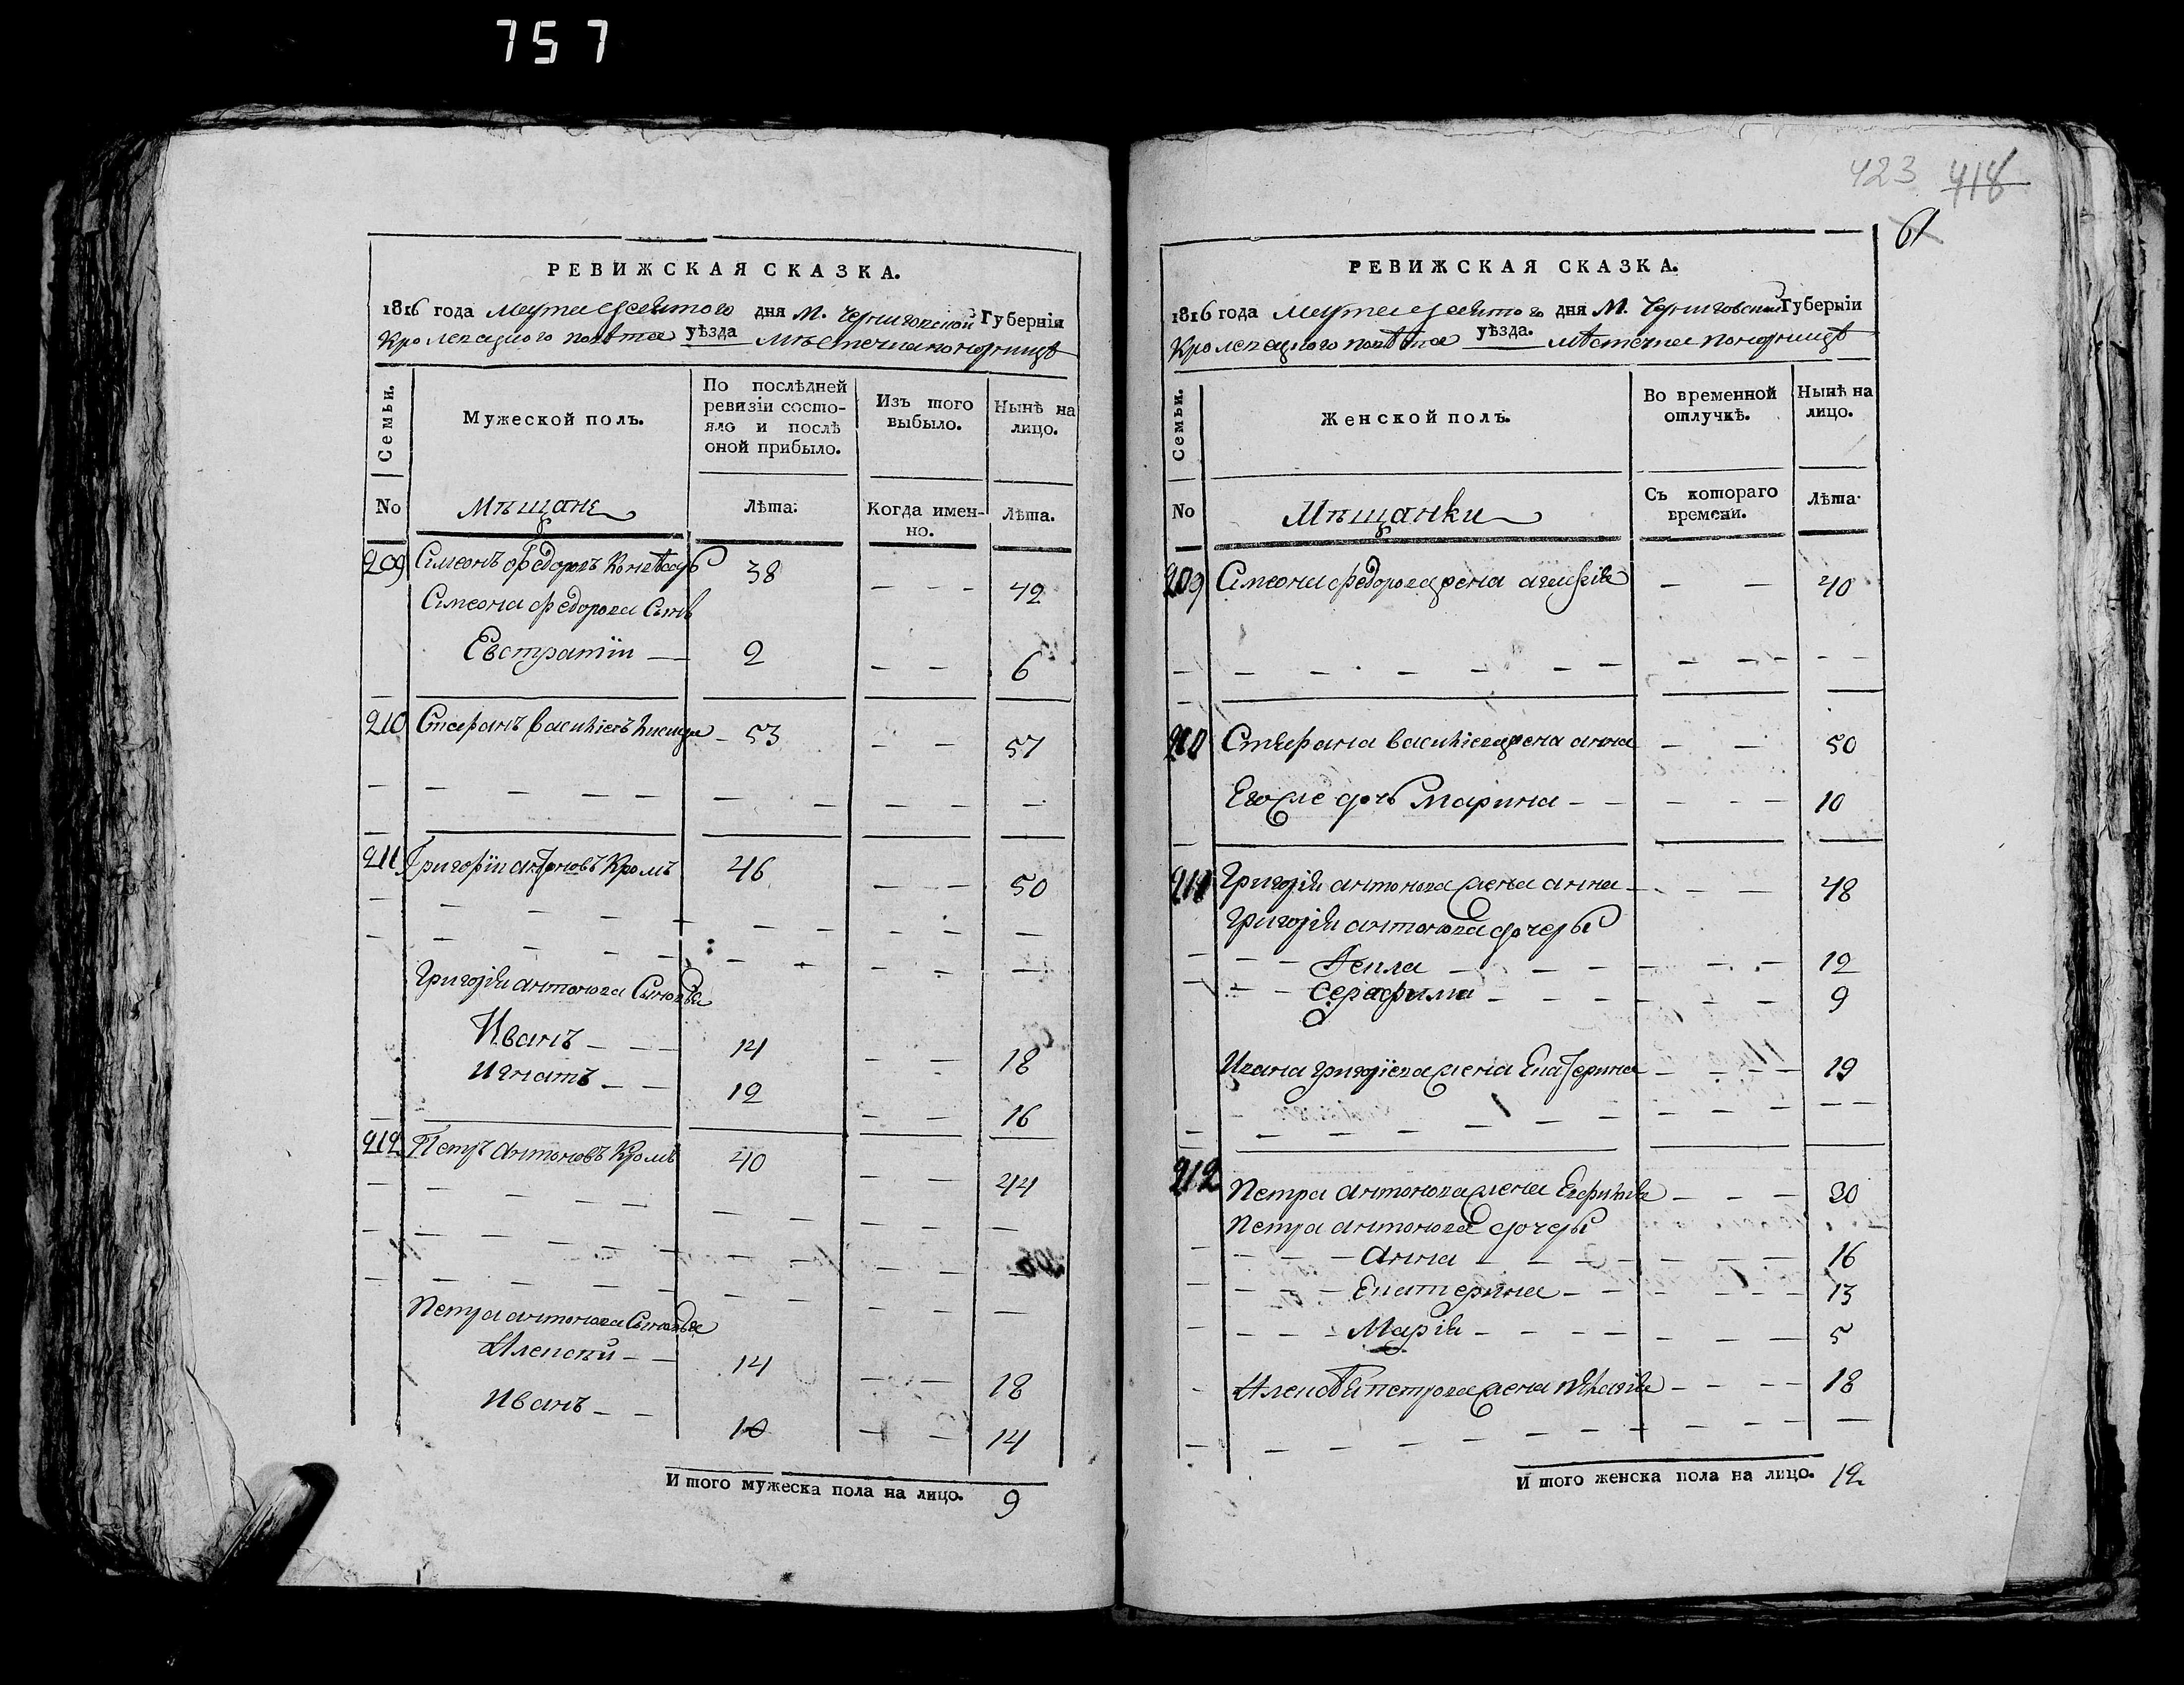 757
423 418
61
РЕВИЖСКАЯ СКАЗКА.
1816 года Марта десятого дня М. Черниговской Губернія
Кролевецкого повѣта уѣзда мѣстечка понорницѣ
Семьи.
Мужеской полъ.
По послѣдней ревизіи состояло и послѣ оной прибыло.
Изъ того выбыло.
Нынѣ на лицо.
No
Мѣщане
Лѣта:
Когда именно.
Лѣта.
209 Симеонъ федоровъ 38 — — — 42
Симеона федорова Сынъ
Евстратіи — 2 — — 6
210 Стефанъ васильевъ — 53 — — 57
211 Григорїи антоновъ Кромъ 46 — — — 50
Григорія антонова Сыновья
Иванъ — — — 14 — — 18
Игнатъ — — 12 — — 16
212 Петръ Антоновъ Кромъ 40 — — 44
Петра антонова Сыновья
Алексѣй — — 14 — — 18
Иванъ — — 10 — — 14
И того мужеска пола на лицо. 9
РЕВИЖСКАЯ СКАЗКА.
1816 года Марта десятого дня М. Черниговской Губерніи
Кролевецкого повѣта уѣзда. мѣстечка понорницѣ
Семьи.
Женской полъ.
Во временной отлучкѣ.
Нынѣ на лицо.
No
Мѣщанки
Съ котораго времени.
Лѣта
209 Симеона федорова жена — — 40
210 Стефана васильева жена анна — — 50
Его же дочь Марина — — — — — 10
211 Григорія антонова жена анна — — — 48
Григорія антонова дочеры
— — — Фекла — — — — — — — 12
— — — Серафима — — — — — — 9
Ивана григорїева жена Екатерина — — — — 19
212 Петра антонова жена — — — 30
Петра антонова дочеры
— — — Анна — — — — — — — 16
— — — Екатерина — — — — — — 13
— — — Марія — — — — — — — 5
Алексѣя петрова жена — — — — 18
И того женска пола на лицо. 12